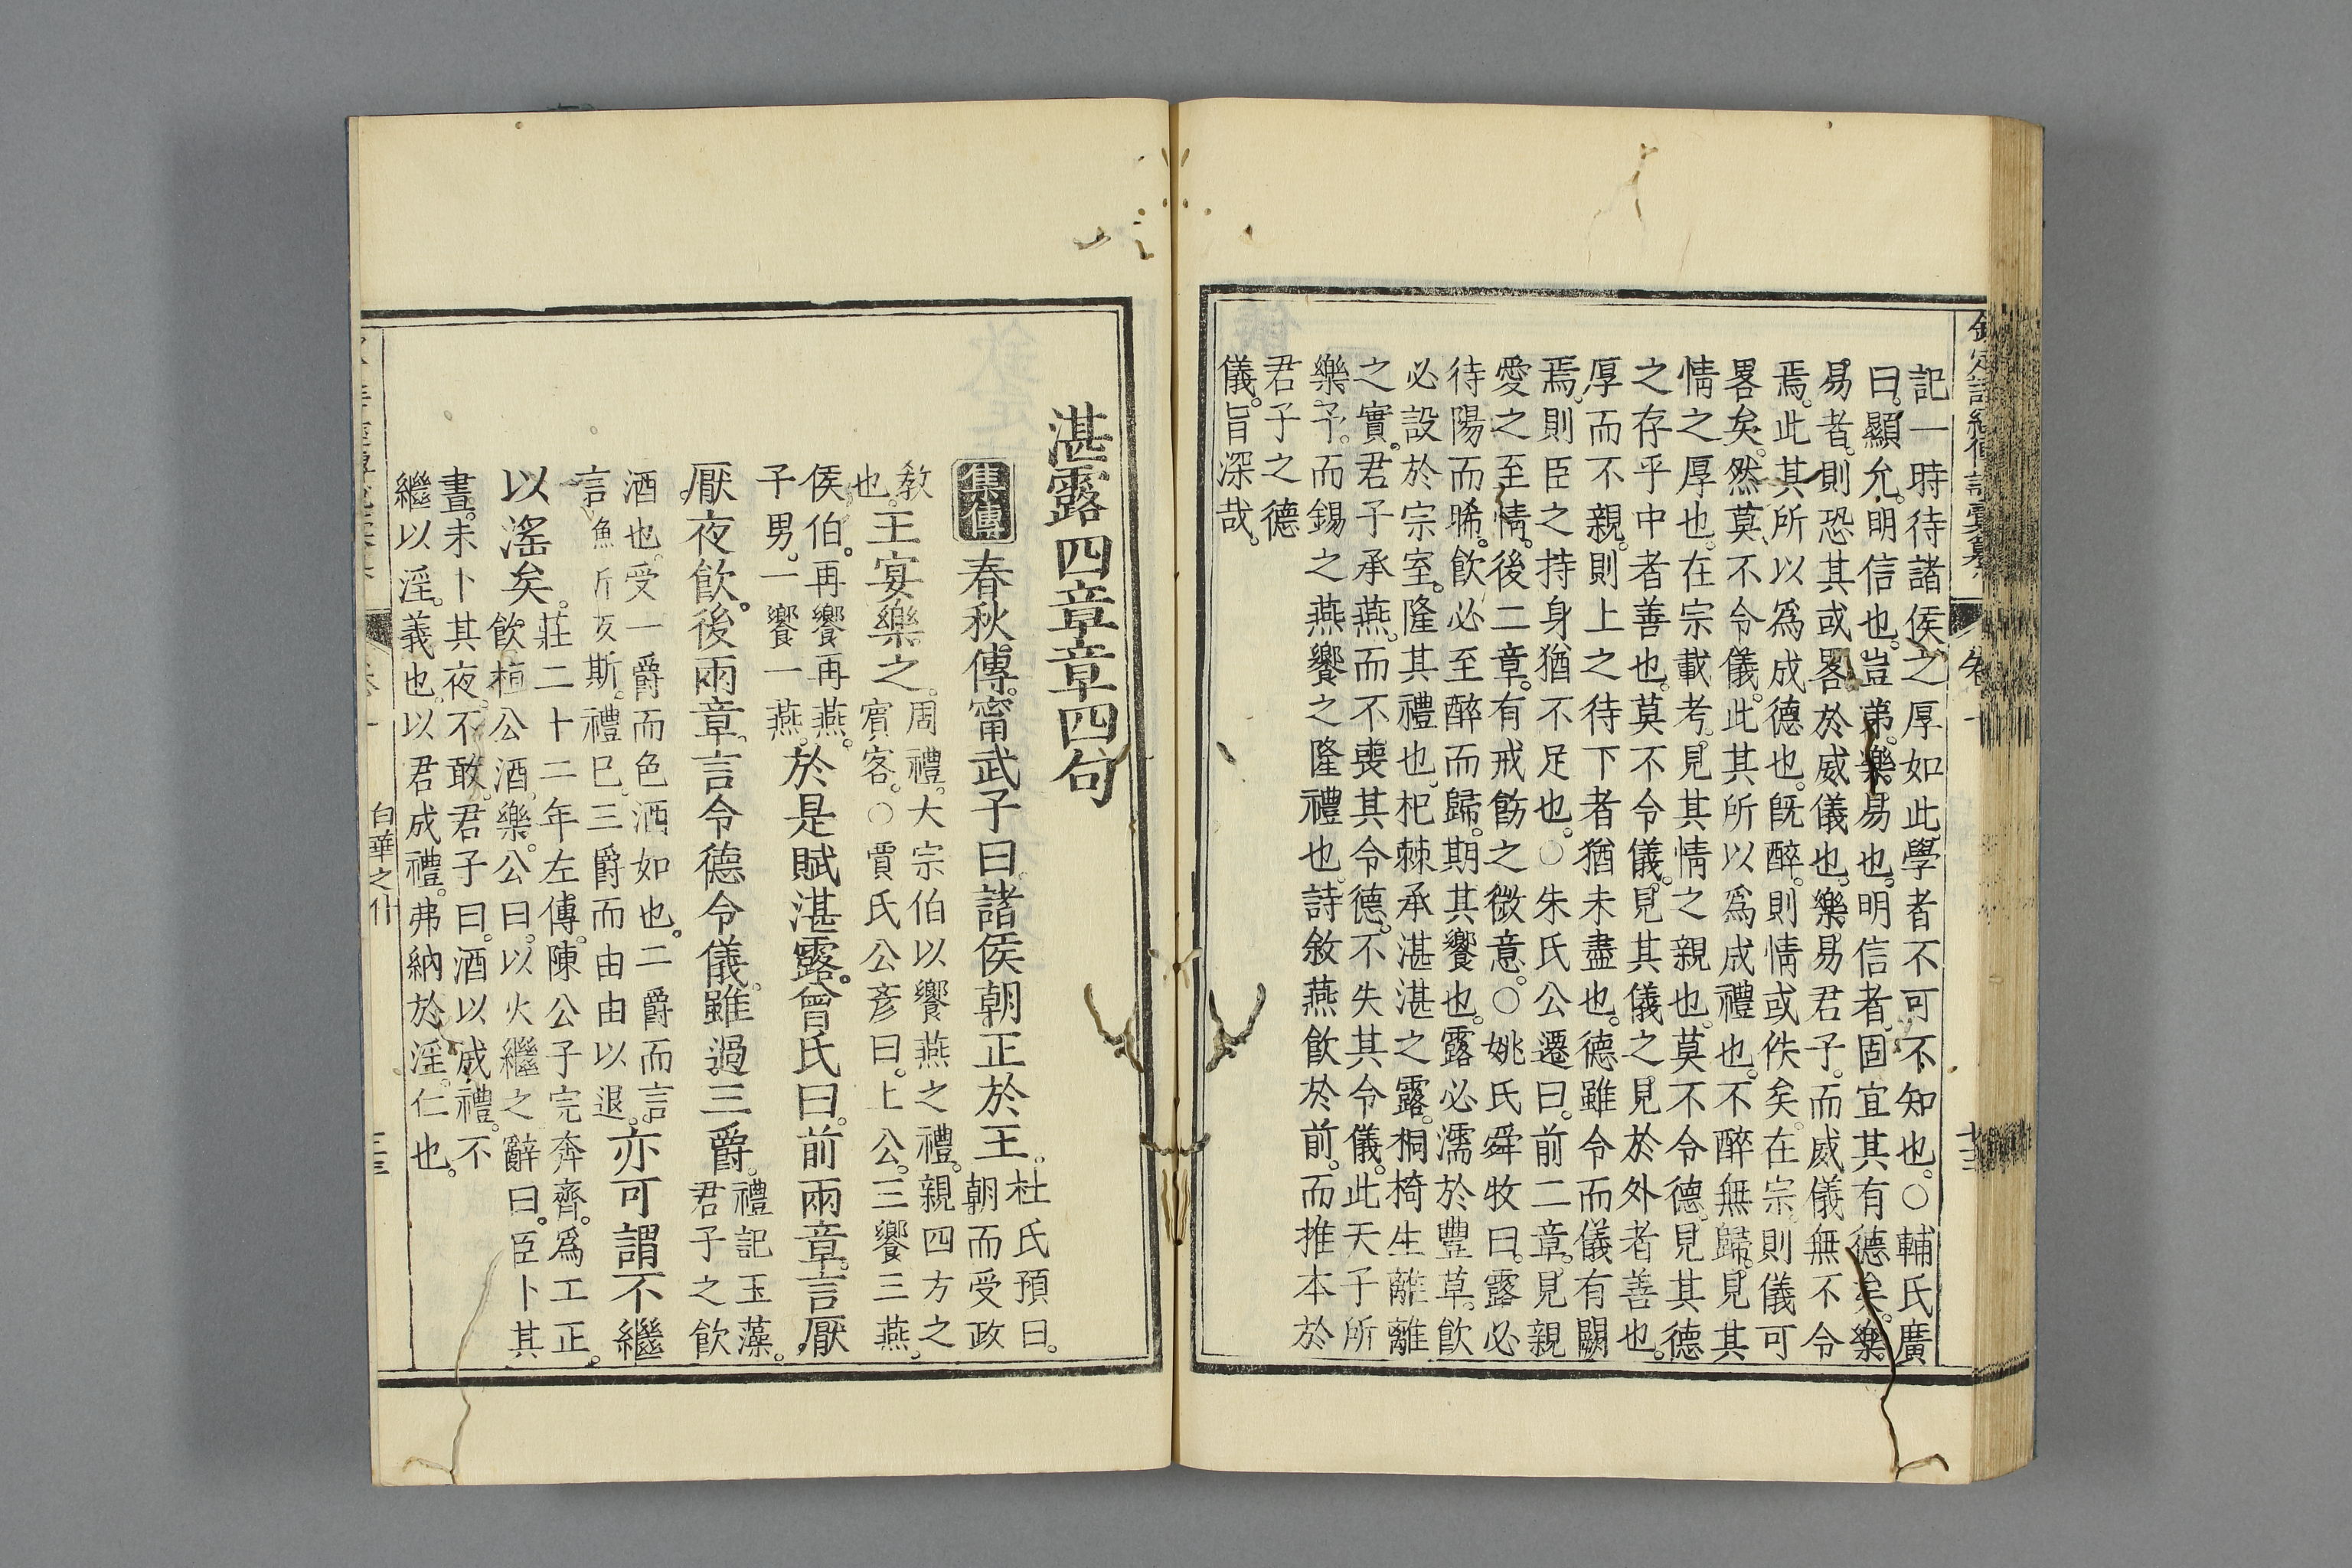 記一時待諸侯之厚如此學者不可不知也。○輔氏廣
曰。顯允。明信也。豈弟。樂易也。明信者。固宜其有德矣。樂
易者。則恐其或畧於威儀也。樂易君子。而威儀無不令
焉。此其所以爲成德也。旣醉。則情或佚矣。在宗。則儀可
畧矣。然莫不令儀。此其所以爲成禮也。不醉無歸。見其
情之厚也。在宗載考。見其情之親也。莫不令德。見其德
之存乎中者善也。莫不令儀。見其儀之見於外者善也。
厚而不親。則上之待下者猶未盡也。德雖令而儀有闕
焉。則臣之持身猶不足也。○朱氏公遷曰。前二章。見親
愛之至情。後二章。有戒飭之微意。○姚氏舜牧曰。露必
待陽而晞。飲必至醉而歸。期其饗也。露必濡於豐草。飲
必設於宗室。隆其禮也。杞棘承湛湛之露。桐椅生離離
之實。君子承燕。而不喪其令德。不失其令儀。此天子所
樂予。而錫之燕饗之隆禮也。詩敘燕飲於前。而推本於
君子之德
儀。旨深哉。
湛露四章章四句
集傳 春秋傳。甯武子曰。諸侯朝正於王。杜氏預曰。
朝而受政
敎
也。王宴樂之。周禮。大宗伯以饗燕之禮。親四方之
賓客。○賈氏公彥曰。上公。三饗三燕。
侯伯。再饗再燕。
子男。一饗一燕。於是賦湛露。曾氏曰。前兩章。言厭
厭夜飲。後兩章。言令德令儀。雖過三爵。禮記玉藻。
君子之飲
酒也。受一爵而色洒如也。二爵而言
言斯。禮已三爵而由由以退。亦可謂不繼
以淫矣。莊二十二年左傳。陳公子完奔齊。爲工正。
飲桓公酒。樂。公曰。以火繼之。辭曰。臣卜其
晝。未卜其夜。不敢。君子曰。酒以成禮。不
繼以淫。義也。以君成禮。弗納於淫。仁也。
白華之什